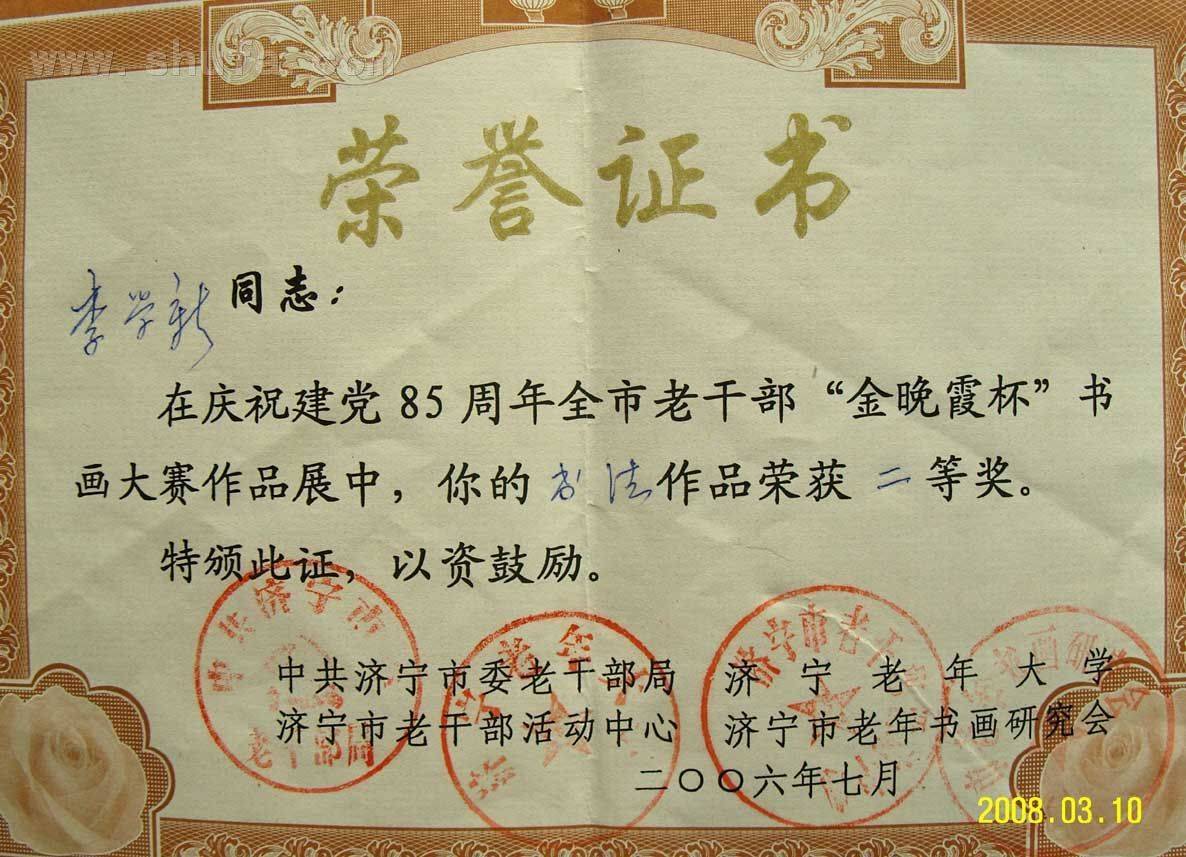 www.shufa.com
荣誉证书
李学新同志:
在庆祝建党85周年全市老干部“金晚霞杯”书
画大赛作品展中，你的书法作品荣获二等奖。
特颁此证，以资鼓励。
中共济宁市
老干部局
中共济宁市委老干部局 济宁老年大学
济宁市老干部活动中心 济宁市老年书画研究会
二〇〇六年七月
2008.03.10